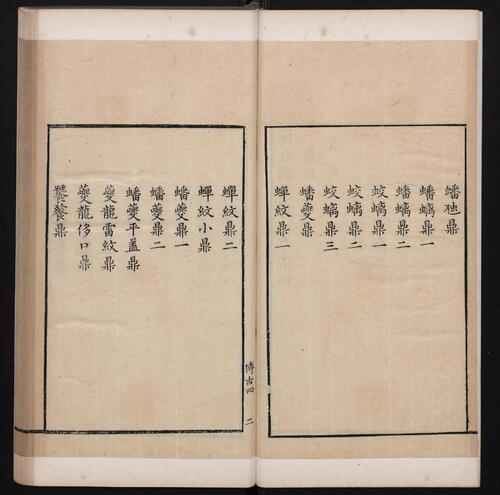 蟠虺鼎
蟠螭鼎一
蟠螭鼎二
蛟螭鼎一
蛟螭鼎二
蛟螭鼎三
蟠夔鼎
蟬紋鼎一
博古四 二
蟬紋鼎二
蟬紋小鼎
蟠夔鼎一
蟠夔鼎二
蟠夔平盖鼎
夔龍雷紋鼎
夔龍侈口鼎
饕餮鼎